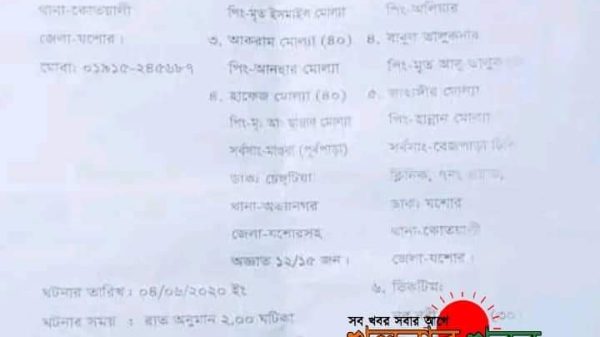 থানা-কোতয়ালী
জেলা-যশোর।
মোবাঃ ০১৯১৫-২৪৫৬৮৭
পিং-মৃত ইসমাইল মোল্যা
৩. আকরাম মোল্যা (৪০)
পিং-আনছার মোল্যা
৪. হাফেজ মোল্যা (৪০)
পিং-মৃঃ আঃ হান্নান মোল্যা
সর্বসাং-মাগুরা (পূর্বপাড়া)
ডাকঃ প্রেমবাগ
থানা-অভয়নগর
জেলা-যশোরসহ
অজ্ঞাত ১২/১৫ জন।
পিং-অলিয়ার
৪. বাবুল তালুকদার
পিং-মৃত আবু তালুকদার
৫. জাহাঙ্গীর মোল্যা
পিং-হান্নান মোল্যা
সর্বসাং-বেজপাড়া
ক্লিনিক, ৭নং ওয়ার্ড,
ডাকঃ যশোর
থানা-কোতয়ালী
জেলা-যশোর।
৬. ভিকটিমঃ
ঘটনার তারিখ : ০৪/০৬/২০২০ ইং
ঘটনার সময় : রাত অনুমান ২.০০ ঘটিকা
সব খবর সবার আগে